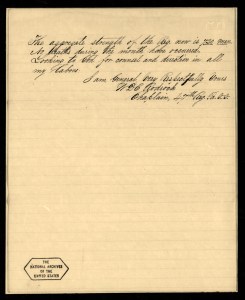 The aggregate strength of the Reg now is 752 men.
No deaths during the month have occured.
Looking to God for counsel and direction in all
my labors.
I am General Very Respectfully Yours
Chaplain, Reg.
THE
NATIONAL ARCHIVES
OF THE
UNITED STATES